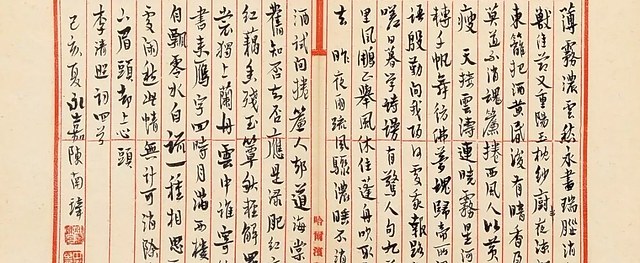 薄霧濃雲愁永晝瑞腦消
獸佳節又重陽玉枕紗廚夜涼
東籬把酒黃昏後有暗香
莫道不消魂簾捲西風人比黃
瘦 天接雲濤連曉霧星河
轉千帆舞彷彿夢魂歸帝所
語殷勤問我歸何處我報路
嗟日暮學詩謾有驚人句九
里風鵬正舉風休住蓬舟吹取
去 昨夜雨疏風驟濃睡不消
哈爾濱
酒試問捲簾人却道海棠
舊知否知否應是綠肥紅
紅藕香殘玉簟秋輕解羅
裳獨上蘭舟雲中誰寄
書来雁字回時月滿西樓
自飄零水自流一種相思
處閑愁此情無計可消除
下眉頭却上心頭
李清照詞四首
己亥夏永嘉陳南